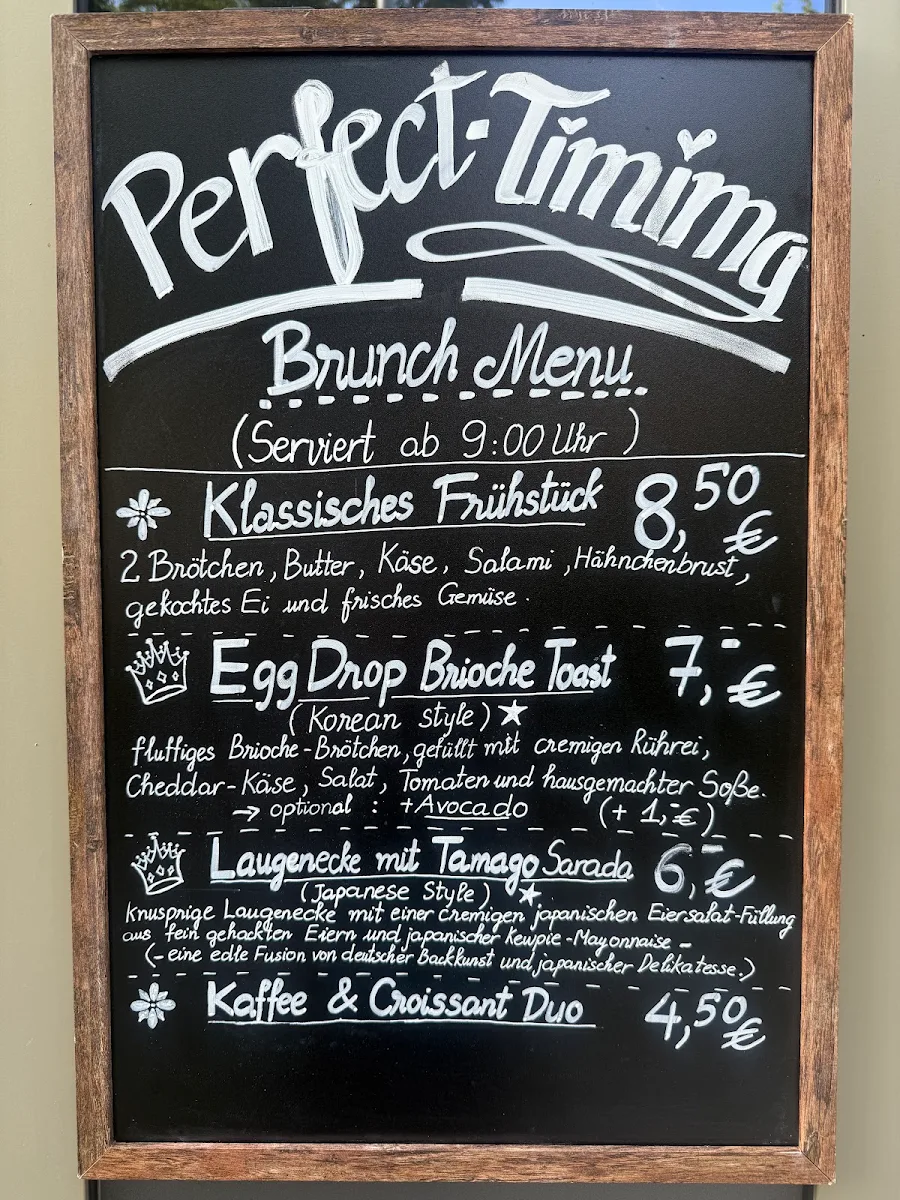 Perfect-Timing
Brunch Menu
(Serviert ab 9:00 Uhr)
Klassisches Frühstück 8,50 €
2 Brötchen, Butter, Käse, Salami, Hähnchenbrust,
gekochtes Ei und frisches Gemüse.
Egg Drop Brioche Toast 7,- €
(Korean style) ★
fluffiges Brioche-Brötchen, gefüllt mit cremigen Rührei,
Cheddar-Käse, Salat, Tomaten und hausgemachter Soße.
→ optional : +Avocado (+ 1,-€)
Laugenecke mit Tamago Sarada 6,- €
(Japanese Style) ★
knusprige Laugenecke mit einer cremigen japanischen Eiersalat-Füllung
aus fein gehackten Eiern und japanischer Kewpie-Mayonnaise -
(- eine edle Fusion von deutscher Backkunst und japanischer Delikatesse.)
Kaffee & Croissant Duo 4,50 €